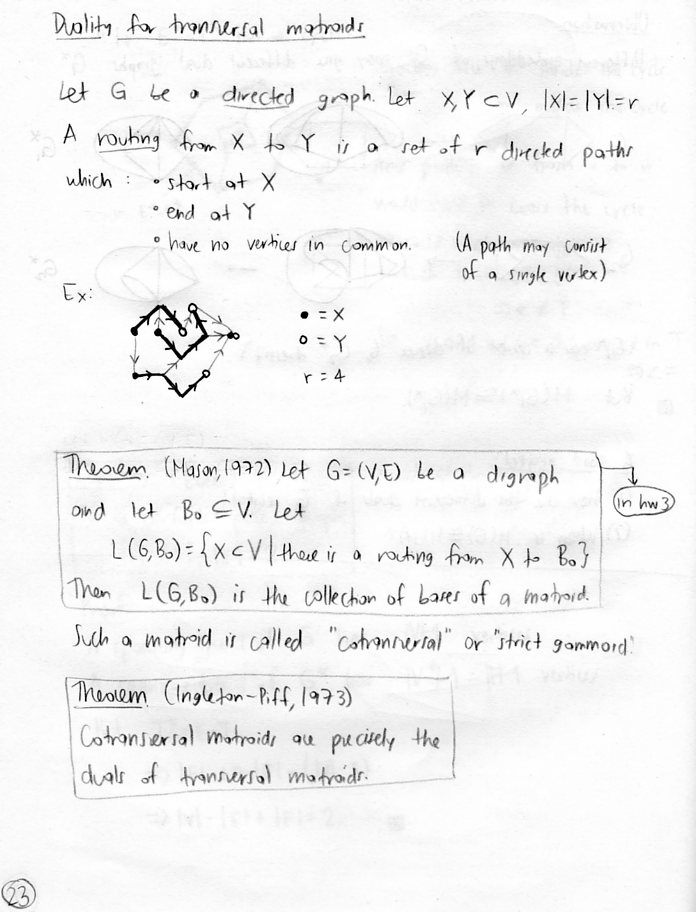 Duality for transversal matroids
Let G be a directed graph. Let X,Y ⊂ V, |X|=|Y|=r
A routing from X to Y is a set of r directed paths
which : • start at X
• end at Y
• have no vertices in common. (A path may consist
of a single vertex)
Ex:
• = X
o = Y
r = 4
Theorem. (Mason, 1972) Let G=(V,E) be a digraph
and let B₀ ⊆ V. Let
L(G,B₀) = {X ⊂ V | there is a routing from X to B₀}
Then L(G,B₀) is the collection of bases of a matroid.
in hw3
Such a matroid is called "cotransversal" or "strict gammoid."
Theorem. (Ingleton-Piff, 1973)
Cotransversal matroids are precisely the
duals of transversal matroids.
23